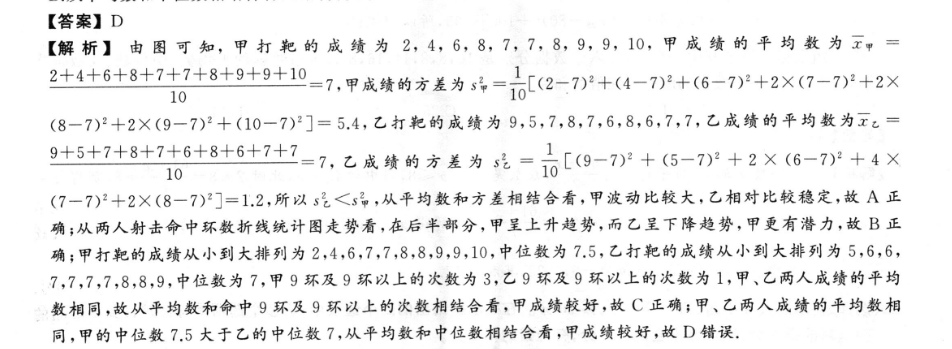 【答案】D
【解析】由图可知,甲打靶的成绩为 2,4,6,8,7,7,8,9,9,10,甲成绩的平均数为 x̄甲 =
(2+4+6+8+7+7+8+9+9+10)/10=7,甲成绩的方差为 s²甲=1/10[(2-7)²+(4-7)²+(6-7)²+2×(7-7)²+2×
(8-7)²+2×(9-7)²+(10-7)²]=5.4,乙打靶的成绩为 9,5,7,8,7,6,8,6,7,7,乙成绩的平均数为 x̄乙 =
(9+5+7+8+7+6+8+6+7+7)/10=7,乙成绩的方差为 s²乙=1/10[(9-7)²+(5-7)²+2×(6-7)²+4×
(7-7)²+2×(8-7)²]=1.2,所以 s²乙<s²甲,从平均数和方差相结合看,甲波动比较大,乙相对比较稳定,故 A 正
确;从两人射击命中环数折线统计图走势看,在后半部分,甲呈上升趋势,而乙呈下降趋势,甲更有潜力,故 B 正
确;甲打靶的成绩从小到大排列为 2,4,6,7,7,8,8,9,9,10,中位数为 7.5,乙打靶的成绩从小到大排列为 5,6,6,
7,7,7,7,8,8,9,中位数为 7,甲 9 环及 9 环以上的次数为 3,乙 9 环及 9 环以上的次数为 1,甲、乙两人成绩的平均
数相同,故从平均数和命中 9 环及 9 环以上的次数相结合看,甲成绩较好,故 C 正确;甲、乙两人成绩的平均数相
同,甲的中位数 7.5 大于乙的中位数 7,从平均数和中位数相结合看,甲成绩较好,故 D 错误.